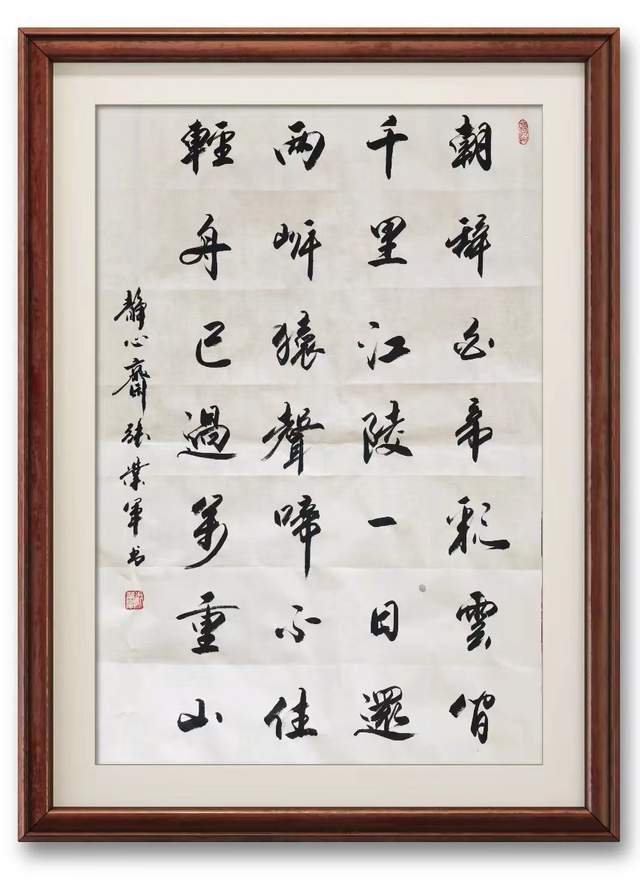 朝辭白帝彩雲間
千里江陵一日還
兩岸猿聲啼不佳
輕舟已過萬重山
靜心齋張業軍书